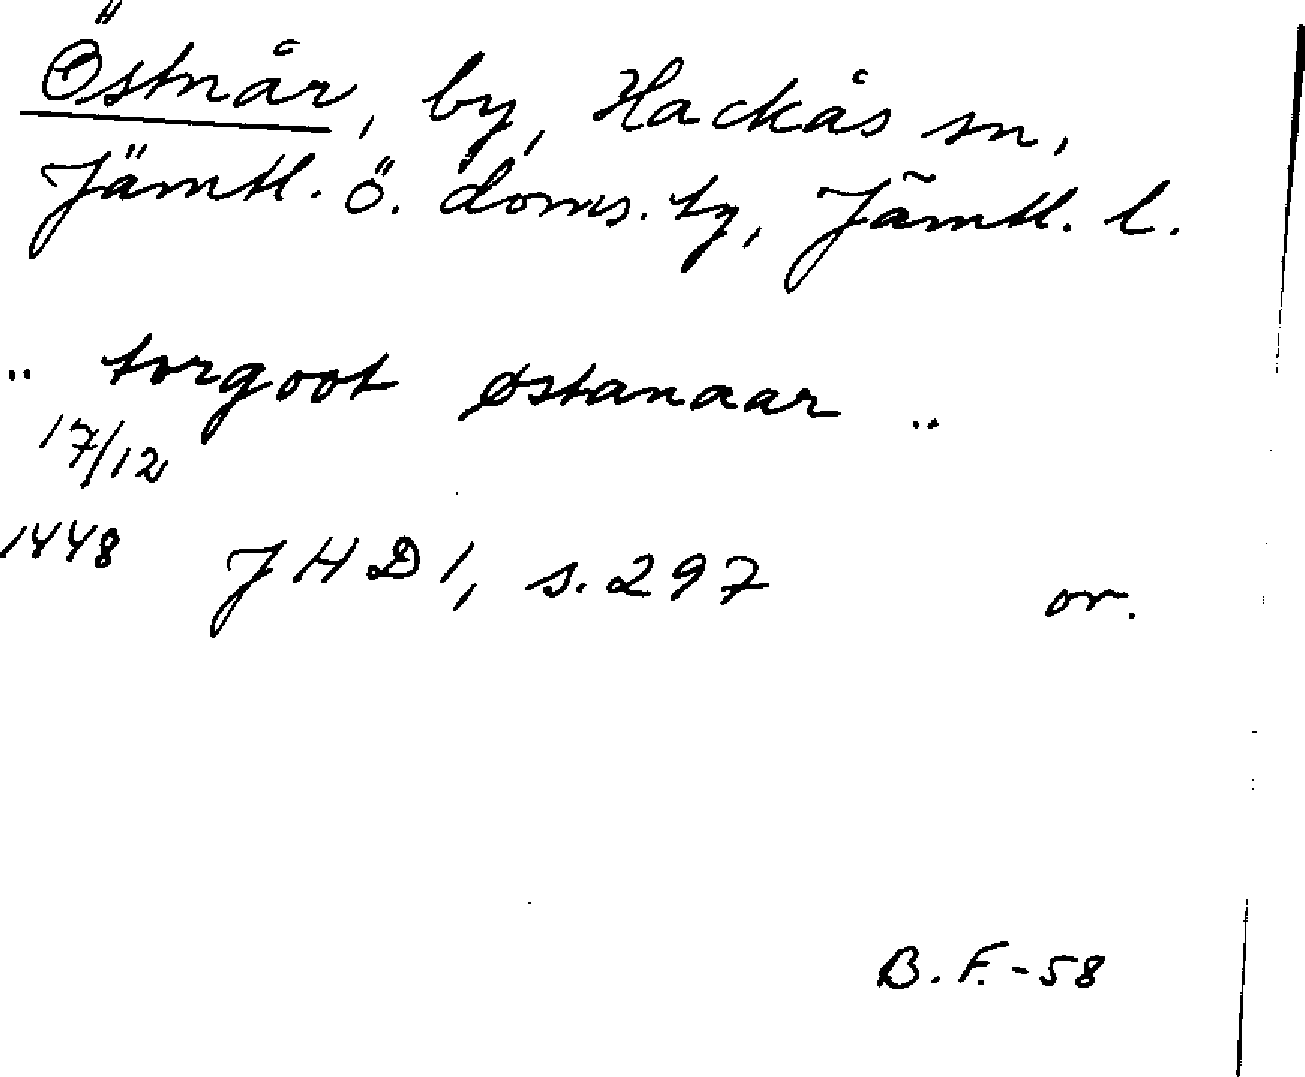 Östnår, by, Hackås sn,
Jämtl. ö. doms. tg, Jämtl. l.
.. torgoot østanaar ..
17/12
1448 JHD 1, s. 297 or.
B. F. - 58